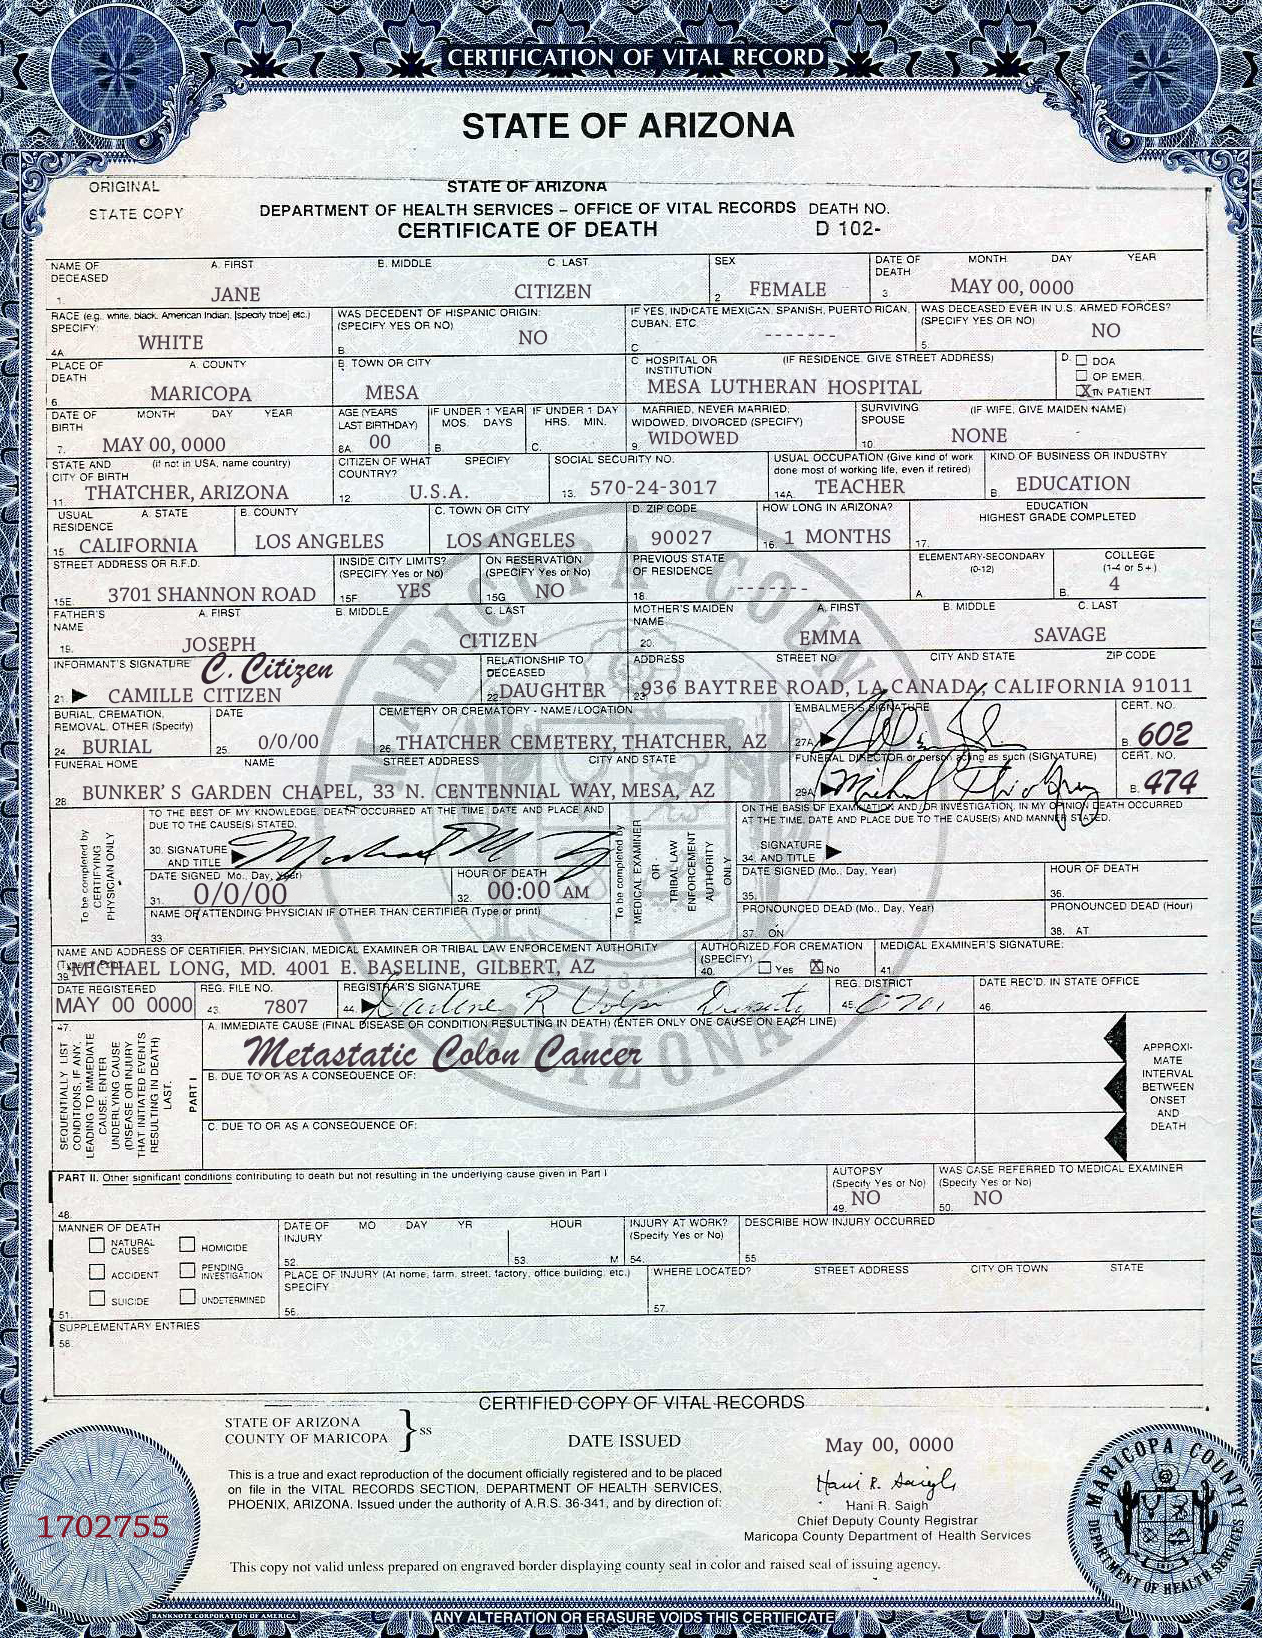 CERTIFICATION OF VITAL RECORD
STATE OF ARIZONA
ORIGINAL
STATE COPY
STATE OF ARIZONA
DEPARTMENT OF HEALTH SERVICES – OFFICE OF VITAL RECORDS DEATH NO.
CERTIFICATE OF DEATH D 102-
NAME OF DECEASED A. FIRST B. MIDDLE C. LAST SEX DATE OF DEATH MONTH DAY YEAR
1. JANE CITIZEN 2 FEMALE 3 MAY 00, 0000
RACE (e.g. white, black, American Indian, [specify tribe] etc.) SPECIFY WAS DECEDENT OF HISPANIC ORIGIN: (SPECIFY YES OR NO) IF YES, INDICATE MEXICAN, SPANISH, PUERTO RICAN, CUBAN, ETC WAS DECEASED EVER IN U.S. ARMED FORCES? (SPECIFY YES OR NO)
4A WHITE B NO C ------- 5. NO
PLACE OF DEATH A. COUNTY B. TOWN OR CITY C. HOSPITAL OR INSTITUTION (IF RESIDENCE, GIVE STREET ADDRESS) D. DOA
OP EMER.
6 MARICOPA MESA MESA LUTHERAN HOSPITAL X IN PATIENT
DATE OF BIRTH MONTH DAY YEAR AGE (YEARS LAST BIRTHDAY) IF UNDER 1 YEAR MOS. DAYS IF UNDER 1 DAY HRS. MIN. MARRIED, NEVER MARRIED, WIDOWED, DIVORCED (SPECIFY) SURVIVING SPOUSE (IF WIFE, GIVE MAIDEN NAME)
7. MAY 00, 0000 8A. 00 B. C. 9. WIDOWED 10. NONE
STATE AND CITY OF BIRTH (if not in USA, name country) CITIZEN OF WHAT COUNTRY? SPECIFY SOCIAL SECURITY NO. USUAL OCCUPATION (Give kind of work done most of working life, even if retired) KIND OF BUSINESS OR INDUSTRY
11. THATCHER, ARIZONA 12. U.S.A. 13. 570-24-3017 14A. TEACHER B EDUCATION
USUAL RESIDENCE A. STATE B. COUNTY C. TOWN OR CITY D. ZIP CODE HOW LONG IN ARIZONA? EDUCATION
HIGHEST GRADE COMPLETED
15. CALIFORNIA LOS ANGELES LOS ANGELES 90027 16. 1 MONTHS 17.
STREET ADDRESS OR R.F.D. INSIDE CITY LIMITS? (SPECIFY Yes or No) ON RESERVATION (SPECIFY Yes or No) PREVIOUS STATE OF RESIDENCE ELEMENTARY-SECONDARY (0-12) COLLEGE (1-4 or 5+)
15E 3701 SHANNON ROAD 15F YES 15G NO 18. ------- A. B. 4
FATHER'S NAME A. FIRST B. MIDDLE C. LAST MOTHER'S MAIDEN NAME A. FIRST B. MIDDLE C. LAST
19. JOSEPH CITIZEN 20. EMMA SAVAGE
INFORMANT'S SIGNATURE C. Citizen RELATIONSHIP TO DECEASED ADDRESS STREET NO. CITY AND STATE ZIP CODE
21. CAMILLE CITIZEN 22 DAUGHTER 23. 936 BAYTREE ROAD, LA CANADA, CALIFORNIA 91011
BURIAL, CREMATION, REMOVAL, OTHER (Specify) DATE CEMETERY OR CREMATORY - NAME/LOCATION EMBALMER'S SIGNATURE CERT. NO.
24. BURIAL 25. 0/0/00 26. THATCHER CEMETERY, THATCHER, AZ 27A B. 602
FUNERAL HOME NAME STREET ADDRESS CITY AND STATE FUNERAL DIRECTOR or person acting as such (SIGNATURE) CERT. NO.
28. BUNKER'S GARDEN CHAPEL, 33 N. CENTENNIAL WAY, MESA, AZ 29A B. 474
To be completed by CERTIFYING PHYSICIAN ONLY
TO THE BEST OF MY KNOWLEDGE, DEATH OCCURRED AT THE TIME, DATE AND PLACE AND DUE TO THE CAUSE(S) STATED.
30. SIGNATURE AND TITLE
DATE SIGNED Mo., Day, Year) HOUR OF DEATH
31. 0/0/00 32. 00:00 AM
NAME OF ATTENDING PHYSICIAN IF OTHER THAN CERTIFIER (Type or print)
33.
To be completed by MEDICAL EXAMINER OR TRIBAL LAW ENFORCEMENT AUTHORITY ONLY
ON THE BASIS OF EXAMINATION AND/OR INVESTIGATION, IN MY OPINION DEATH OCCURRED AT THE TIME, DATE AND PLACE DUE TO THE CAUSE(S) AND MANNER STATED.
SIGNATURE
34. AND TITLE
DATE SIGNED (Mo., Day, Year) HOUR OF DEATH
35. 36.
PRONOUNCED DEAD (Mo., Day, Year) PRONOUNCED DEAD (Hour)
37. ON 38. AT
NAME AND ADDRESS OF CERTIFIER, PHYSICIAN, MEDICAL EXAMINER OR TRIBAL LAW ENFORCEMENT AUTHORITY AUTHORIZED FOR CREMATION (SPECIFY) MEDICAL EXAMINER'S SIGNATURE:
39. MICHAEL LONG, MD. 4001 E. BASELINE, GILBERT, AZ 40. Yes X No 41.
DATE REGISTERED REG. FILE NO. REGISTRAR'S SIGNATURE REG. DISTRICT DATE REC'D. IN STATE OFFICE
MAY 00 0000 43. 7807 44. 45. 0701 46
47. SEQUENTIALLY LIST CONDITIONS, IF ANY, LEADING TO IMMEDIATE CAUSE. ENTER UNDERLYING CAUSE (DISEASE OR INJURY THAT INITIATED EVENTS RESULTING IN DEATH) LAST.
PART I
A. IMMEDIATE CAUSE (FINAL DISEASE OR CONDITION RESULTING IN DEATH) (ENTER ONLY ONE CAUSE ON EACH LINE)
Metastatic Colon Cancer
B. DUE TO OR AS A CONSEQUENCE OF:
C. DUE TO OR AS A CONSEQUENCE OF:
APPROXI-
MATE
INTERVAL
BETWEEN
ONSET
AND
DEATH
PART II. Other significant conditions contributing to death but not resulting in the underlying cause given in Part I AUTOPSY (Specify Yes or No) WAS CASE REFERRED TO MEDICAL EXAMINER (Specify Yes or No)
48. 49. NO 50. NO
MANNER OF DEATH DATE OF INJURY MO DAY YR HOUR INJURY AT WORK? (Specify Yes or No) DESCRIBE HOW INJURY OCCURRED
NATURAL CAUSES HOMICIDE 52 53. M 54. 55
ACCIDENT PENDING INVESTIGATION PLACE OF INJURY (At home, farm, street, factory, office building, etc.) SPECIFY WHERE LOCATED? STREET ADDRESS CITY OR TOWN STATE
SUICIDE UNDETERMINED
51. 56. 57.
SUPPLEMENTARY ENTRIES
58.
CERTIFIED COPY OF VITAL RECORDS
STATE OF ARIZONA
COUNTY OF MARICOPA } ss
DATE ISSUED May 00, 0000
This is a true and exact reproduction of the document officially registered and to be placed
on file in the VITAL RECORDS SECTION, DEPARTMENT OF HEALTH SERVICES,
PHOENIX, ARIZONA. Issued under the authority of A.R.S. 36-341, and by direction of:
Hani R. Saigh
Hani R. Saigh
Chief Deputy County Registrar
Maricopa County Department of Health Services
1702755
This copy not valid unless prepared on engraved border displaying county seal in color and raised seal of issuing agency.
MARICOPA COUNTY
DEPARTMENT OF HEALTH SERVICES
MARICOPA COUNTY
ARIZONA
BANKNOTE CORPORATION OF AMERICA
ANY ALTERATION OR ERASURE VOIDS THIS CERTIFICATE